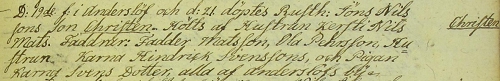 D: 19de f. i Anderslöf och d: 21 döptes Rusth: Jöns Nils
sons Son Christen. Hölts af Hustrun Kersti Nils
Mats. Faddrar: Fadder Matsson, Ola Pehrsson, Hu
strun Karna Hindrich Svenssons, och Pigan
Karna Svens Dotter, alla af Anderslöfs
Christen